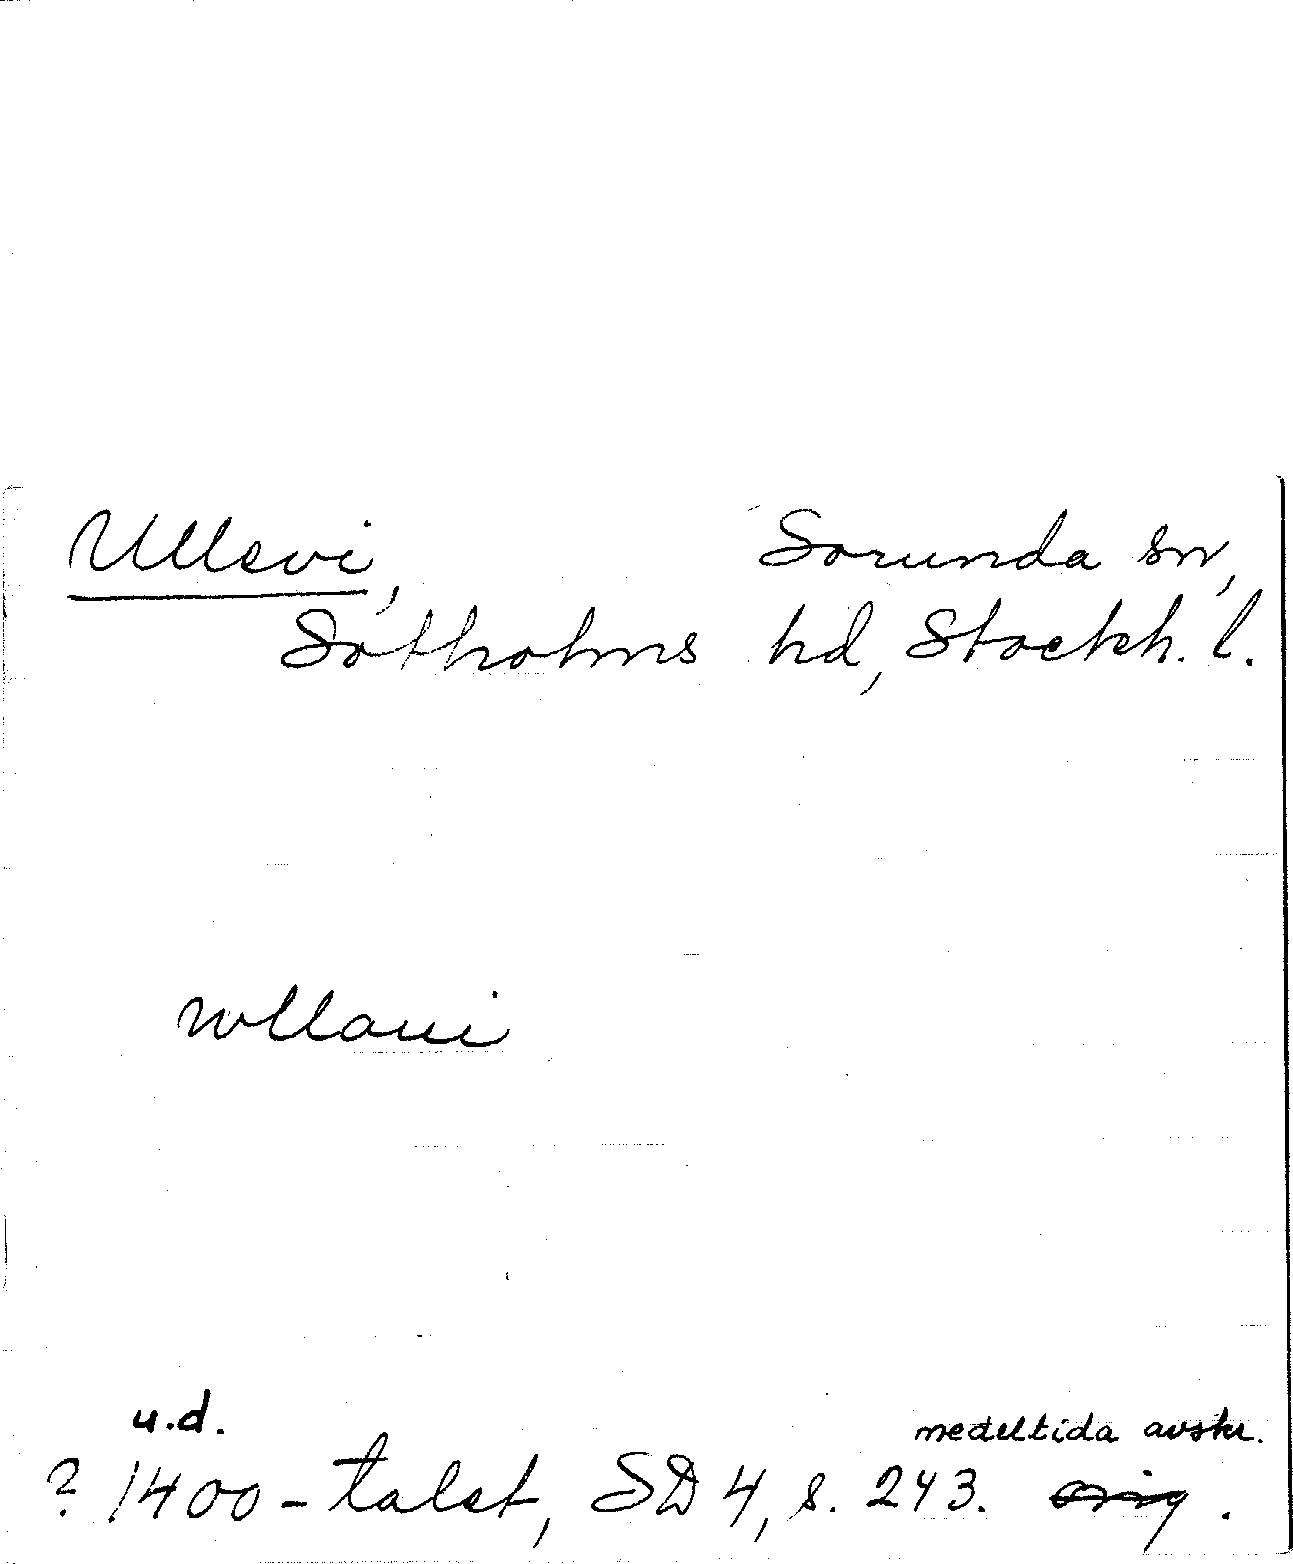 Ullevi, Sorunda sn,
Sotholms hd, Stockh. l.
wllaui
u.d. medeltida avskr.
? 1400-talet, SD 4, s. 243. orig.